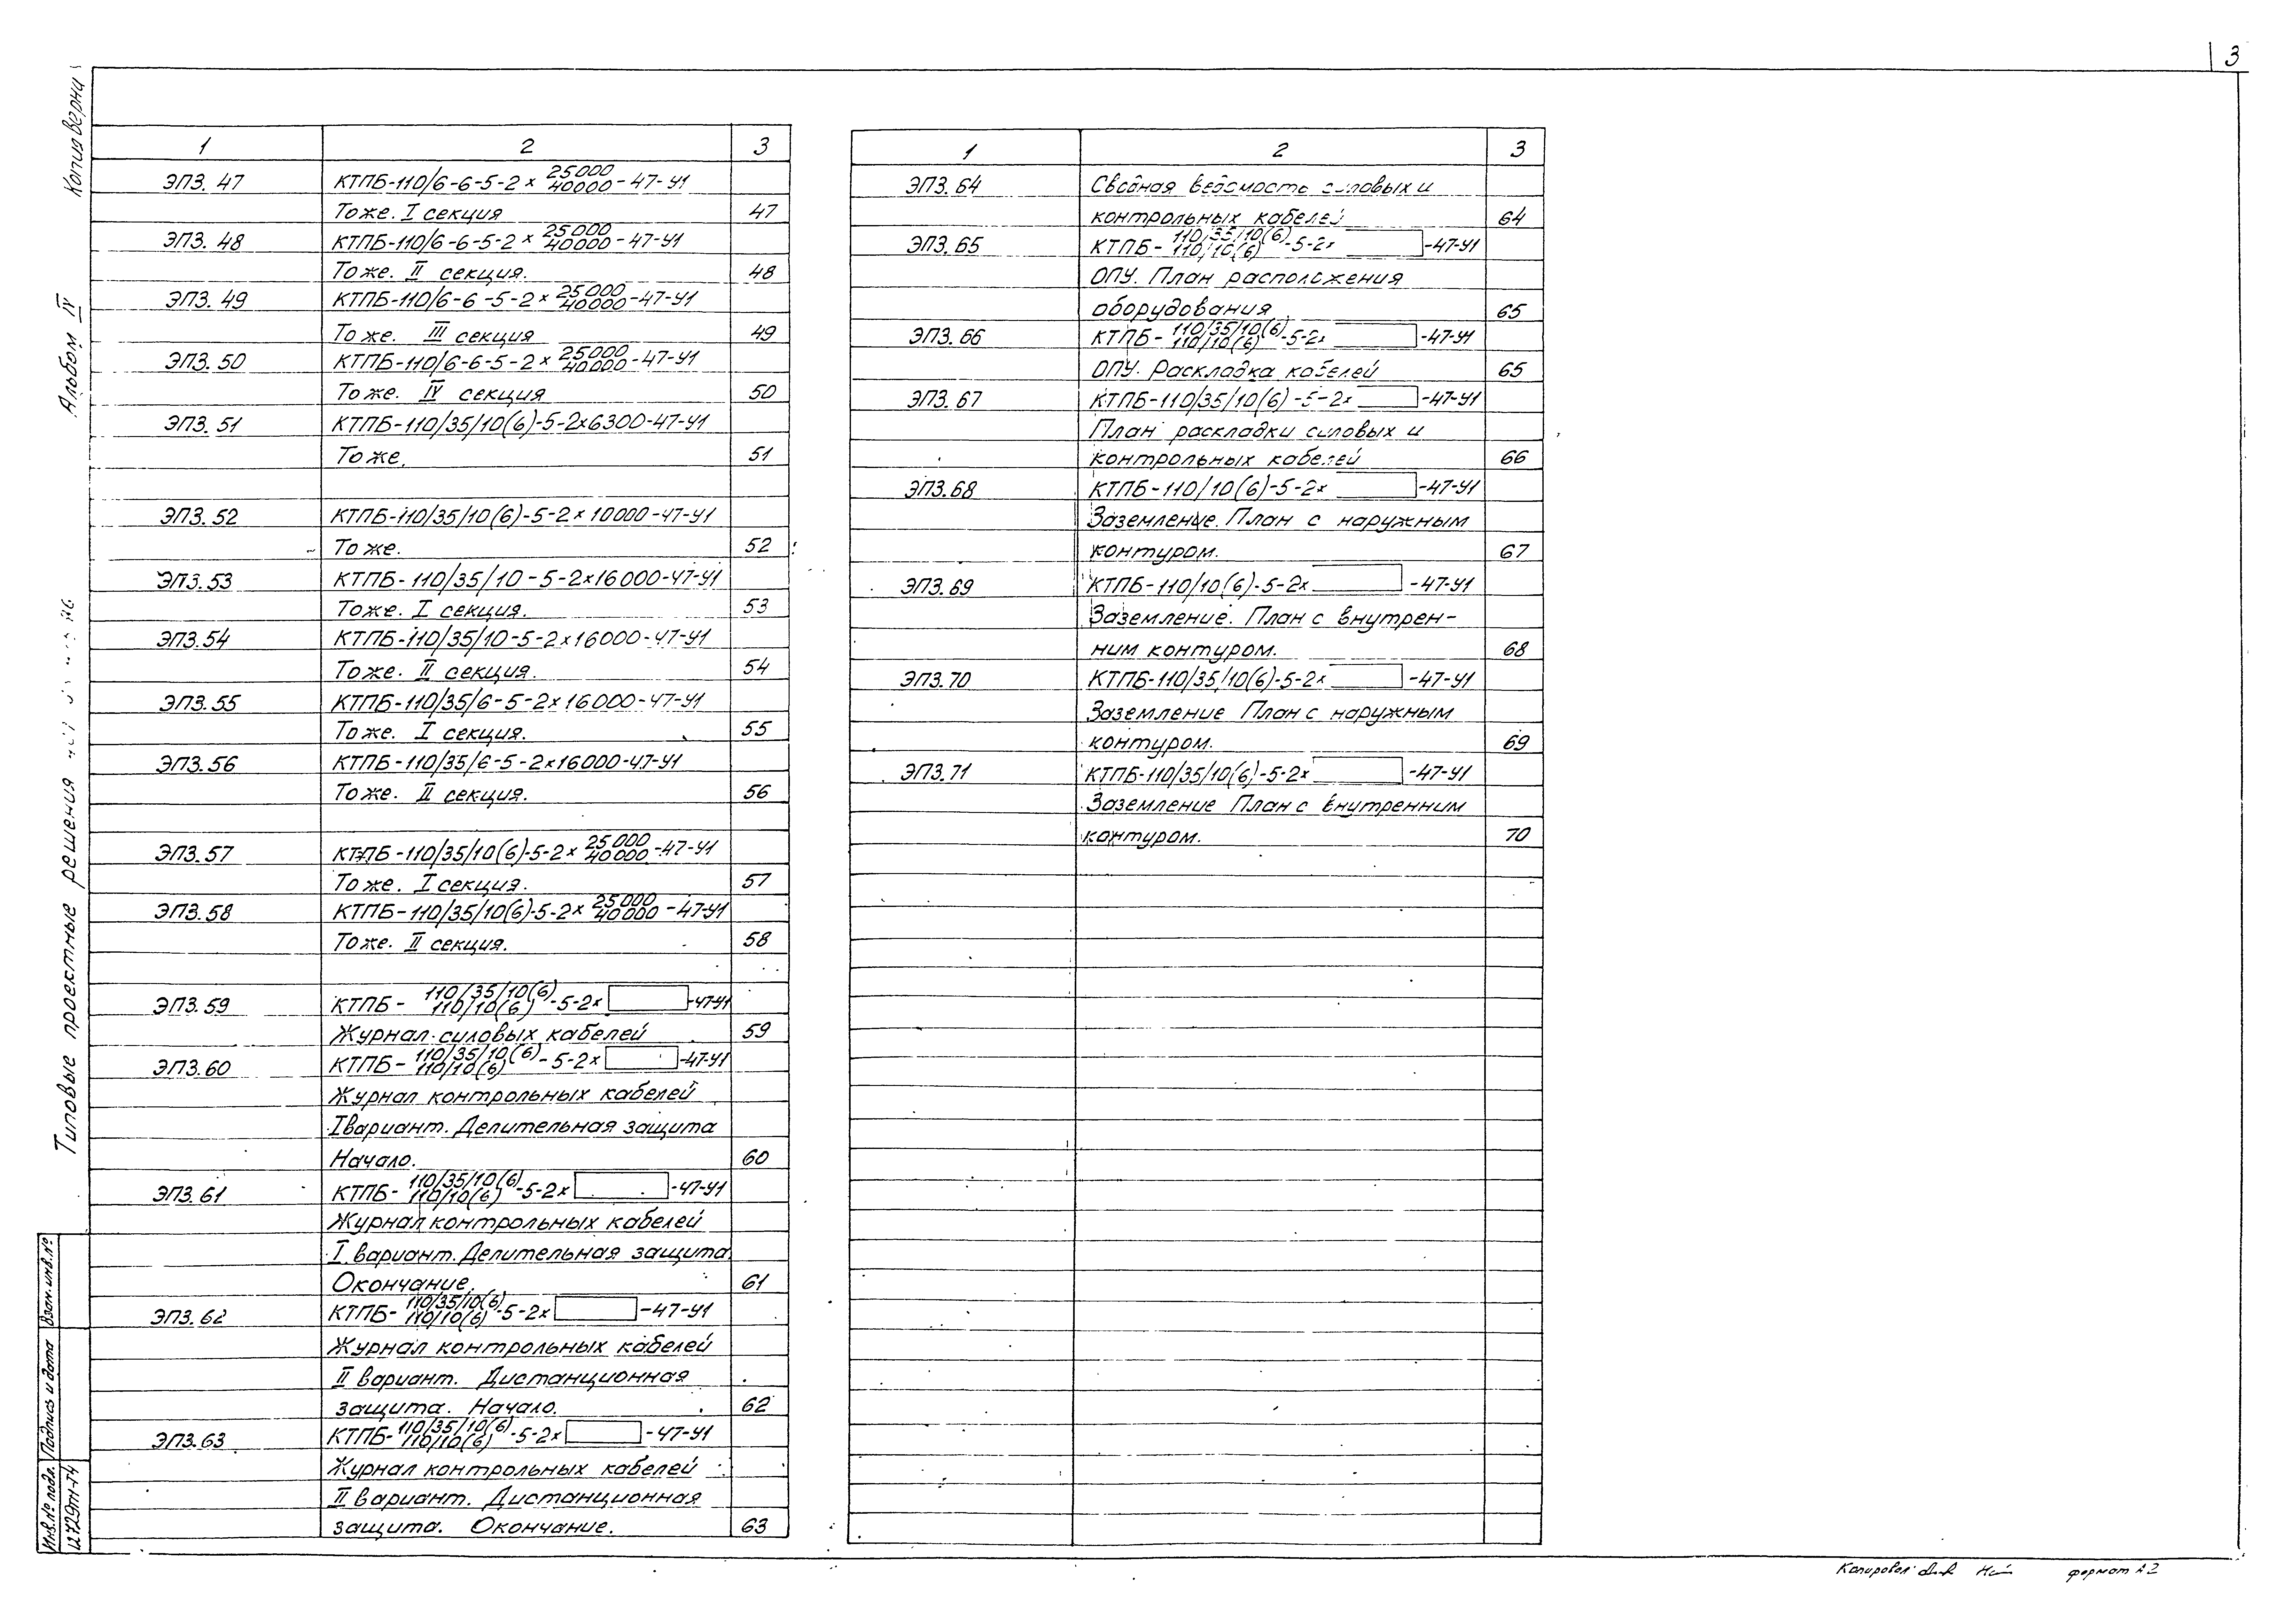 3
Копия верна
Альбом IV
Типовые проектные решения
Взам. инв. №
Подпись и дата
Инв. № подл.
12729тм-т4
1 2 3
ЭП3. 47 КТПБ-110/6-6-5-2× 25000/40000 -47-У1
То же. I секция 47
ЭП3. 48 КТПБ-110/6-6-5-2× 25000/40000 -47-У1
То же. II секция. 48
ЭП3. 49 КТПБ-110/6-6-5-2× 25000/40000 -47-У1
То же. III секция 49
ЭП3. 50 КТПБ-110/6-6-5-2× 25000/40000 -47-У1
То же. IV секция 50
ЭП3. 51 КТПБ-110/35/10(6)-5-2×6300-47-У1
То же. 51
ЭП3. 52 КТПБ-110/35/10(6)-5-2×10000-47-У1
То же. 52
ЭП3. 53 КТПБ-110/35/10-5-2×16000-47-У1
То же. I секция. 53
ЭП3. 54 КТПБ-110/35/10-5-2×16000-47-У1
То же. II секция. 54
ЭП3. 55 КТПБ-110/35/6-5-2×16000-47-У1
То же. I секция. 55
ЭП3. 56 КТПБ-110/35/6-5-2×16000-47-У1
То же. II секция. 56
ЭП3. 57 КТПБ-110/35/10(6)-5-2× 25000/40000 -47-У1
То же. I секция. 57
ЭП3. 58 КТПБ-110/35/10(6)-5-2× 25000/40000 -47-У1
То же. II секция. 58
ЭП3. 59 КТПБ- 110/35/10(6) 110/10(6) -5-2× -47-У1
Журнал силовых кабелей 59
ЭП3. 60 КТПБ- 110/35/10(6) 110/10(6) -5-2× -47-У1
Журнал контрольных кабелей
I вариант. Делительная защита
Начало. 60
ЭП3. 61 КТПБ- 110/35/10(6) 110/10(6) -5-2× -47-У1
Журнал контрольных кабелей
I вариант. Делительная защита.
Окончание. 61
ЭП3. 62 КТПБ- 110/35/10(6) 110/10(6) -5-2× -47-У1
Журнал контрольных кабелей
II вариант. Дистанционная
защита. Начало. 62
ЭП3. 63 КТПБ- 110/35/10(6) 110/10(6) -5-2× -47-У1
Журнал контрольных кабелей
II вариант. Дистанционная
защита. Окончание. 63
1 2 3
ЭП3. 64 Сводная ведомость силовых и
контрольных кабелей 64
ЭП3. 65 КТПБ- 110/35/10(6) 110/10(6) -5-2× -47-У1
ОПУ. План расположения
оборудования 65
ЭП3. 66 КТПБ- 110/35/10(6) 110/10(6) -5-2× -47-У1
ОПУ. Раскладка кабелей 65
ЭП3. 67 КТПБ-110/35/10(6)-5-2× -47-У1
План раскладки силовых и
контрольных кабелей 66
ЭП3. 68 КТПБ-110/10(6)-5-2× -47-У1
Заземление. План с наружным
контуром. 67
ЭП3. 69 КТПБ-110/10(6)-5-2× -47-У1
Заземление. План с внутрен-
ним контуром. 68
ЭП3. 70 КТПБ-110/35/10(6)-5-2× -47-У1
Заземление План с наружным
контуром. 69
ЭП3. 71 КТПБ-110/35/10(6)-5-2× -47-У1
Заземление План с внутренним
контуром. 70
Копировал формат А2